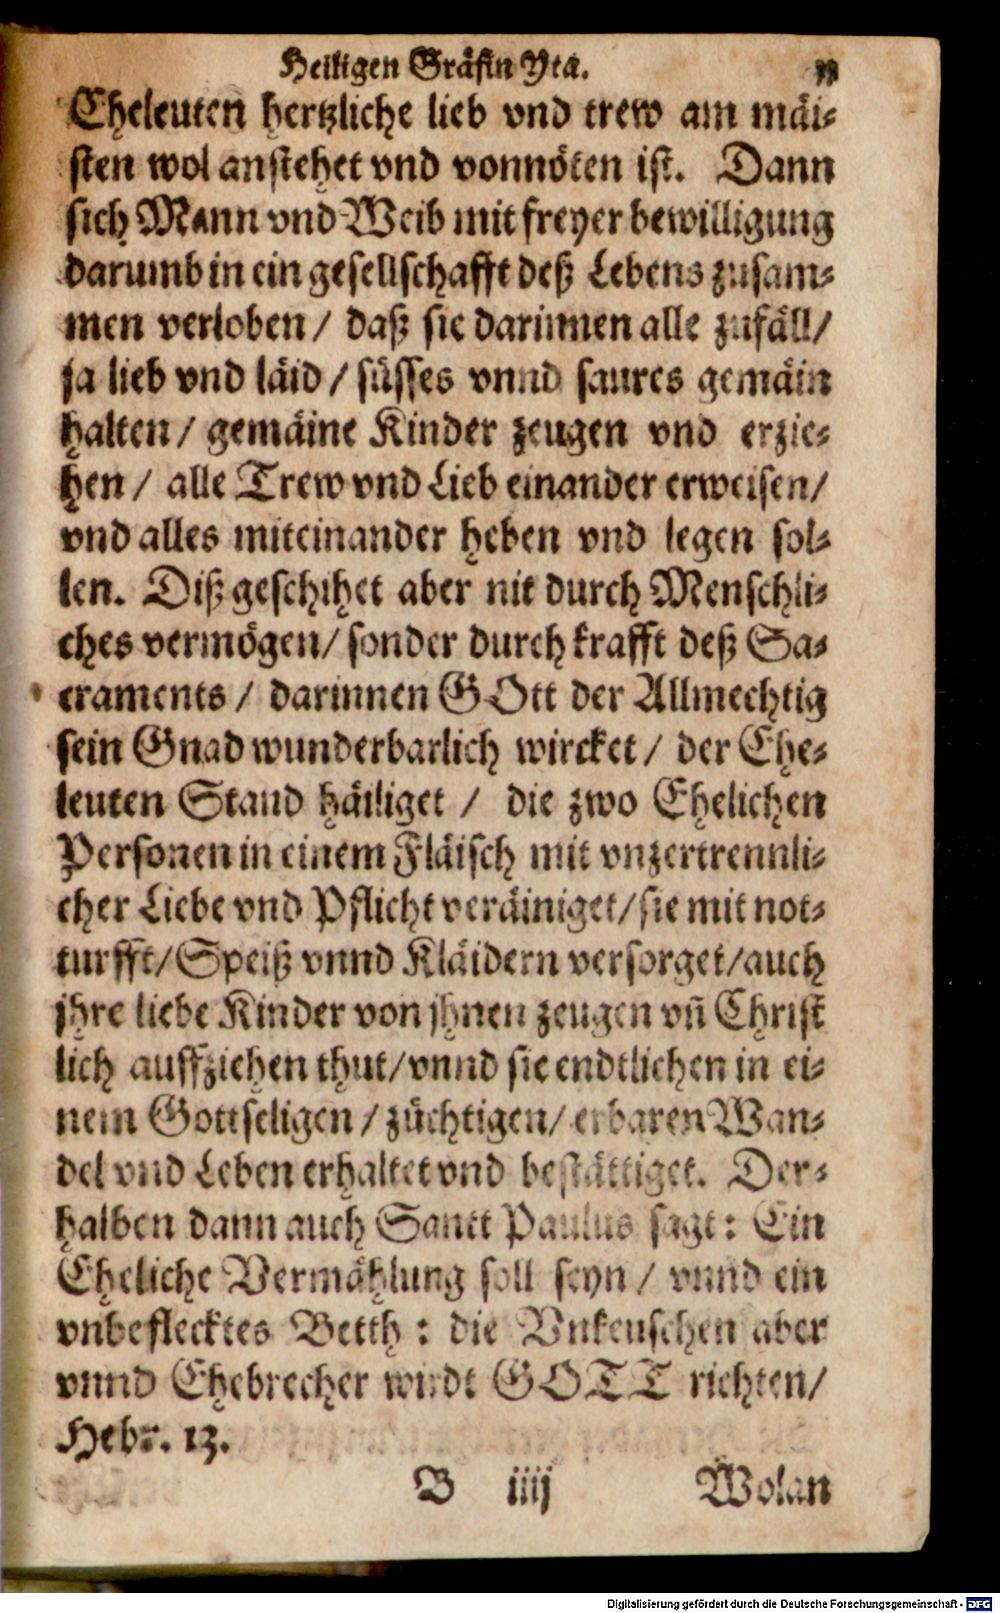 Heiligen Gräfin Yta.
Eheleuten hertzliche lieb vnd trew am mäi-
sten wol anstehet vnd vonnöten ist. Dann
sich Mann vnd Weib mit freyer bewilligung
darumb in ein gesellschafft deß Lebens zusam-
men verloben / daß sie darinnen alle zufäll /
ja lieb vnd läid / süsses vnnd saures gemäin
halten / gemäine Kinder zeugen vnd erzie-
hen / alle Trew vnd Lieb einander erweisen /
vnd alles miteinander heben vnd legen sol-
len. Diß geschihet aber nit durch Menschli-
ches vermögen / sonder durch krafft deß Sa-
craments / darinnen GOtt der Allmechtig
sein Gnad wunderbarlich wircket / der Ehe-
leuten Stand häiliget / die zwo Ehelichen
Personen in einem Fläisch mit vnzertrennli-
cher Liebe vnd Pflicht veräiniget / sie mit not-
turfft / Speiß vnnd Kläidern versorget / auch
jhre liebe Kinder von jhnen zeugen vñ Christ
lich auffziehen thut / vnnd sie endtlichen in ei-
nem Gottseligen / züchtigen / erbaren Wan-
del vnd Leben erhaltet vnd bestättiget. Der-
halben dann auch Sanct Paulus sagt : Ein
Eheliche Vermählung soll seyn / vnnd ein
vnbeflecktes Betth : die Vnkeuschen aber
vnnd Ehebrecher wirdt GOTT richten /
Hebr. 13.
B iiij Wolan
Digitalisierung gefördert durch die Deutsche Forschungsgemeinschaft - DFG